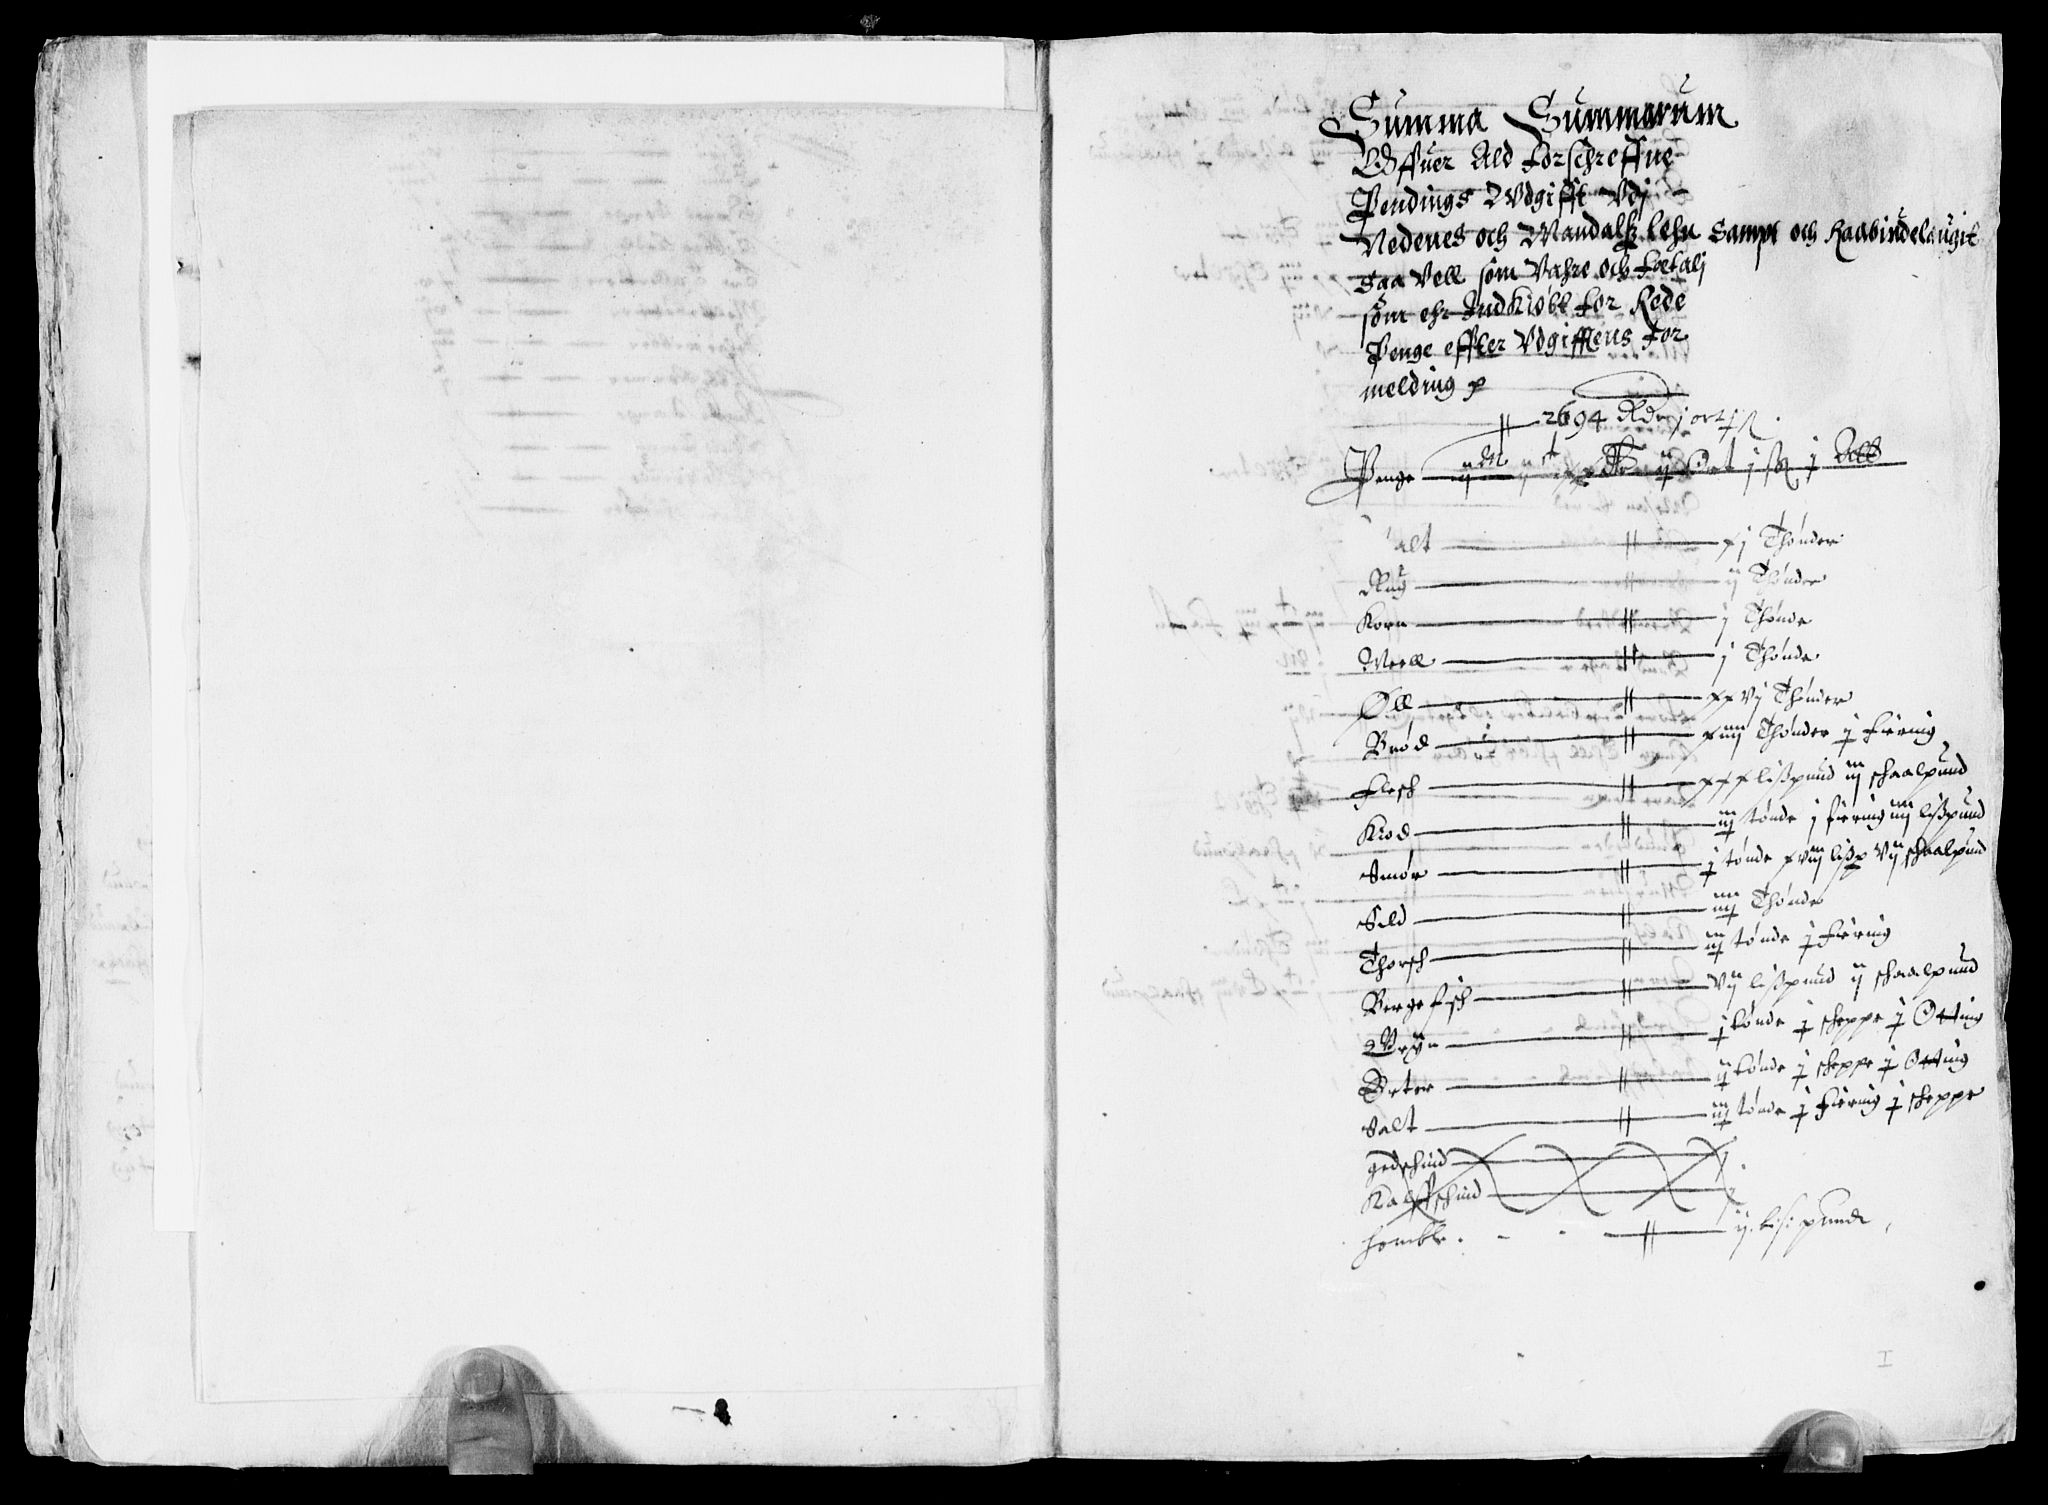 Summa Summarum
Offuer Ald forschreffne
Pendings Vdgifft Vdj
Nedenes och Mandalß lehn Sampt och Raabindelaugit
saa Vell som Vahre och fetalj
som ehr Indkiøbt for Rede
Penge effter Vdgifftens for
melding
2694 Rdr j ort
Penge ij ort j Alb
alt xj Thønder
Rug ij Thønder
Korn j Thønde
Meell j Thønde
Øll xxvj Thønder
Brød xiiij Thønder j fiering
flesch xxx lißpund iij schaalpund
Kiød iij tønde j fiering iiij lißpund
Smør j tønde xviij lißp vij schaalpund
Sild iiij Thønde
Thorsch iij tønde j fiering
Bergefisch vij lißpund ij schaalpund
Gryn j tønde j scheppe j Otting
Erter ij tønde j scheppe j Otting
Salt iij tønde j fiering j scheppe
gedschind j
Kalffschind j
homble ij lisspunde
I